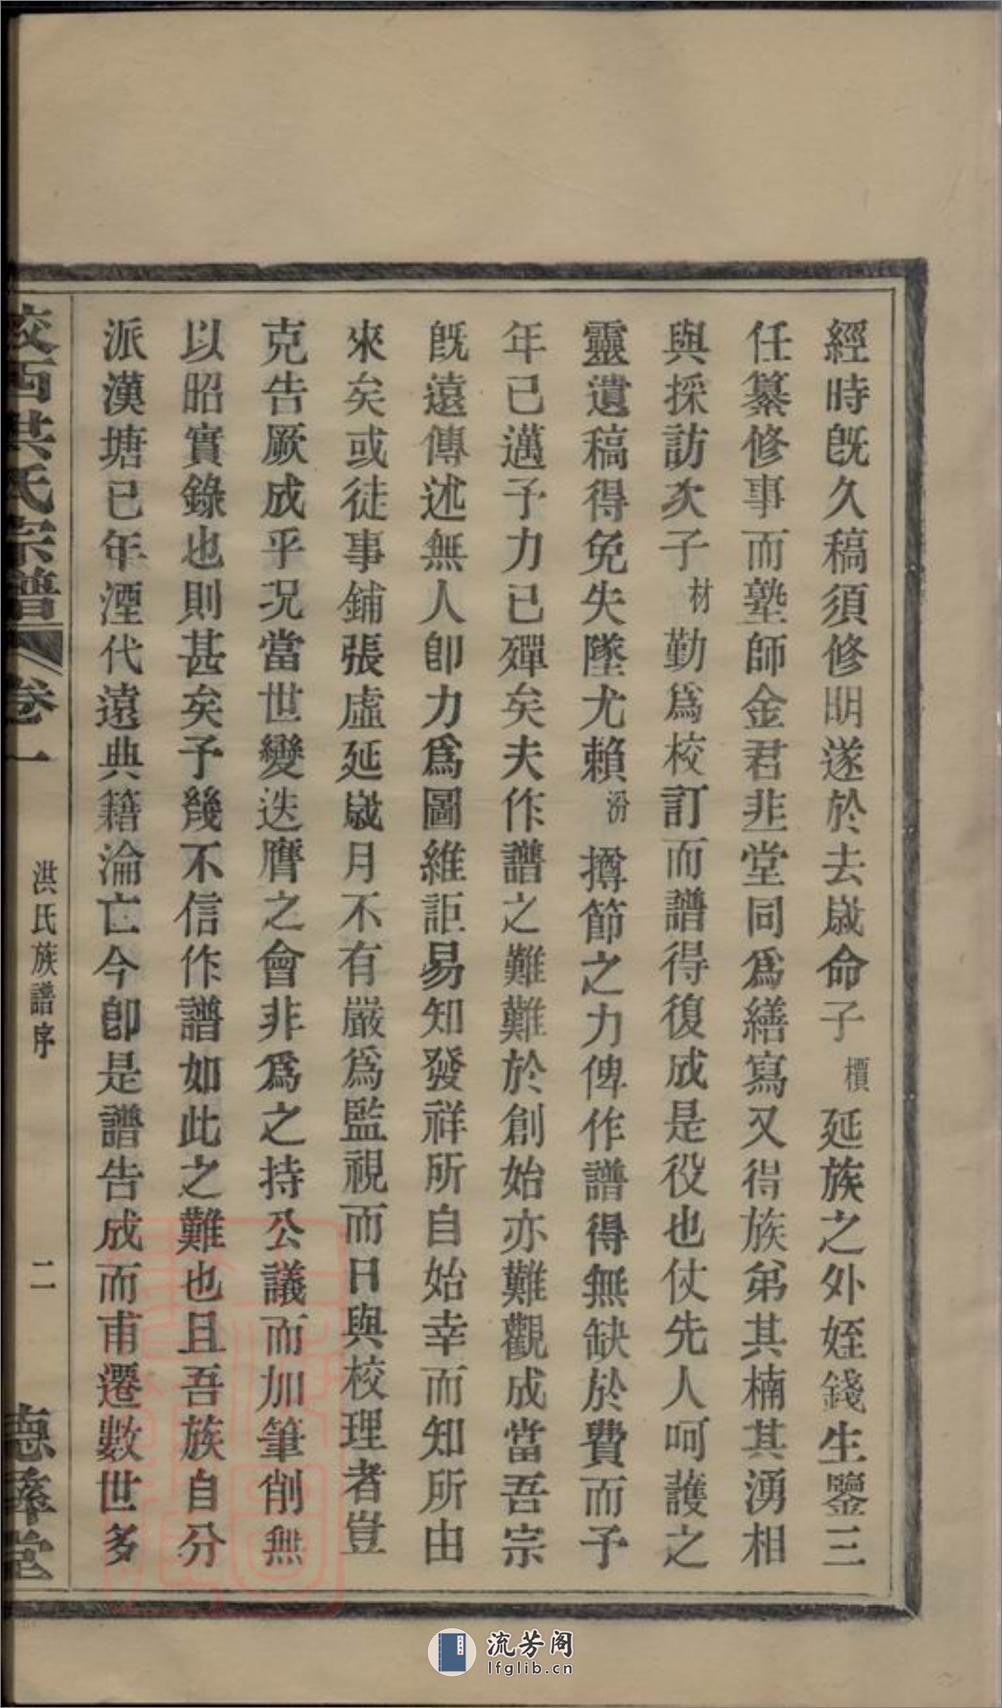 經時旣久稿須修明遂於去歲命子檟延族之外姪錢生鑒三
任纂修事而塾師金君非堂同爲繕寫又得族弟其楠其湧相
與採訪次子材勤爲校訂而譜得復成是役也仗先人呵護之
靈遺稿得免失墜尤賴汾撙節之力俾作譜得無缺於費而予
年已邁予力已殫矣夫作譜之難難於創始亦難觀成當吾宗
旣遠傳述無人卽力爲圖維詎易知發祥所自始幸而知所由
來矣或徒事鋪張虛延歲月不有嚴爲監視而日與校理者豈
克告厥成乎況當世變迭膺之會非爲之持公議而加筆削無
以昭實錄也則甚矣予幾不信作譜如此之難也且吾族自分
派漢塘已年湮代遠典籍淪亡今卽是譜告成而甫遷數世多
西洪氏宗譜 卷一 洪氏族譜序 二 堂
流芳阁
lfglib.cn